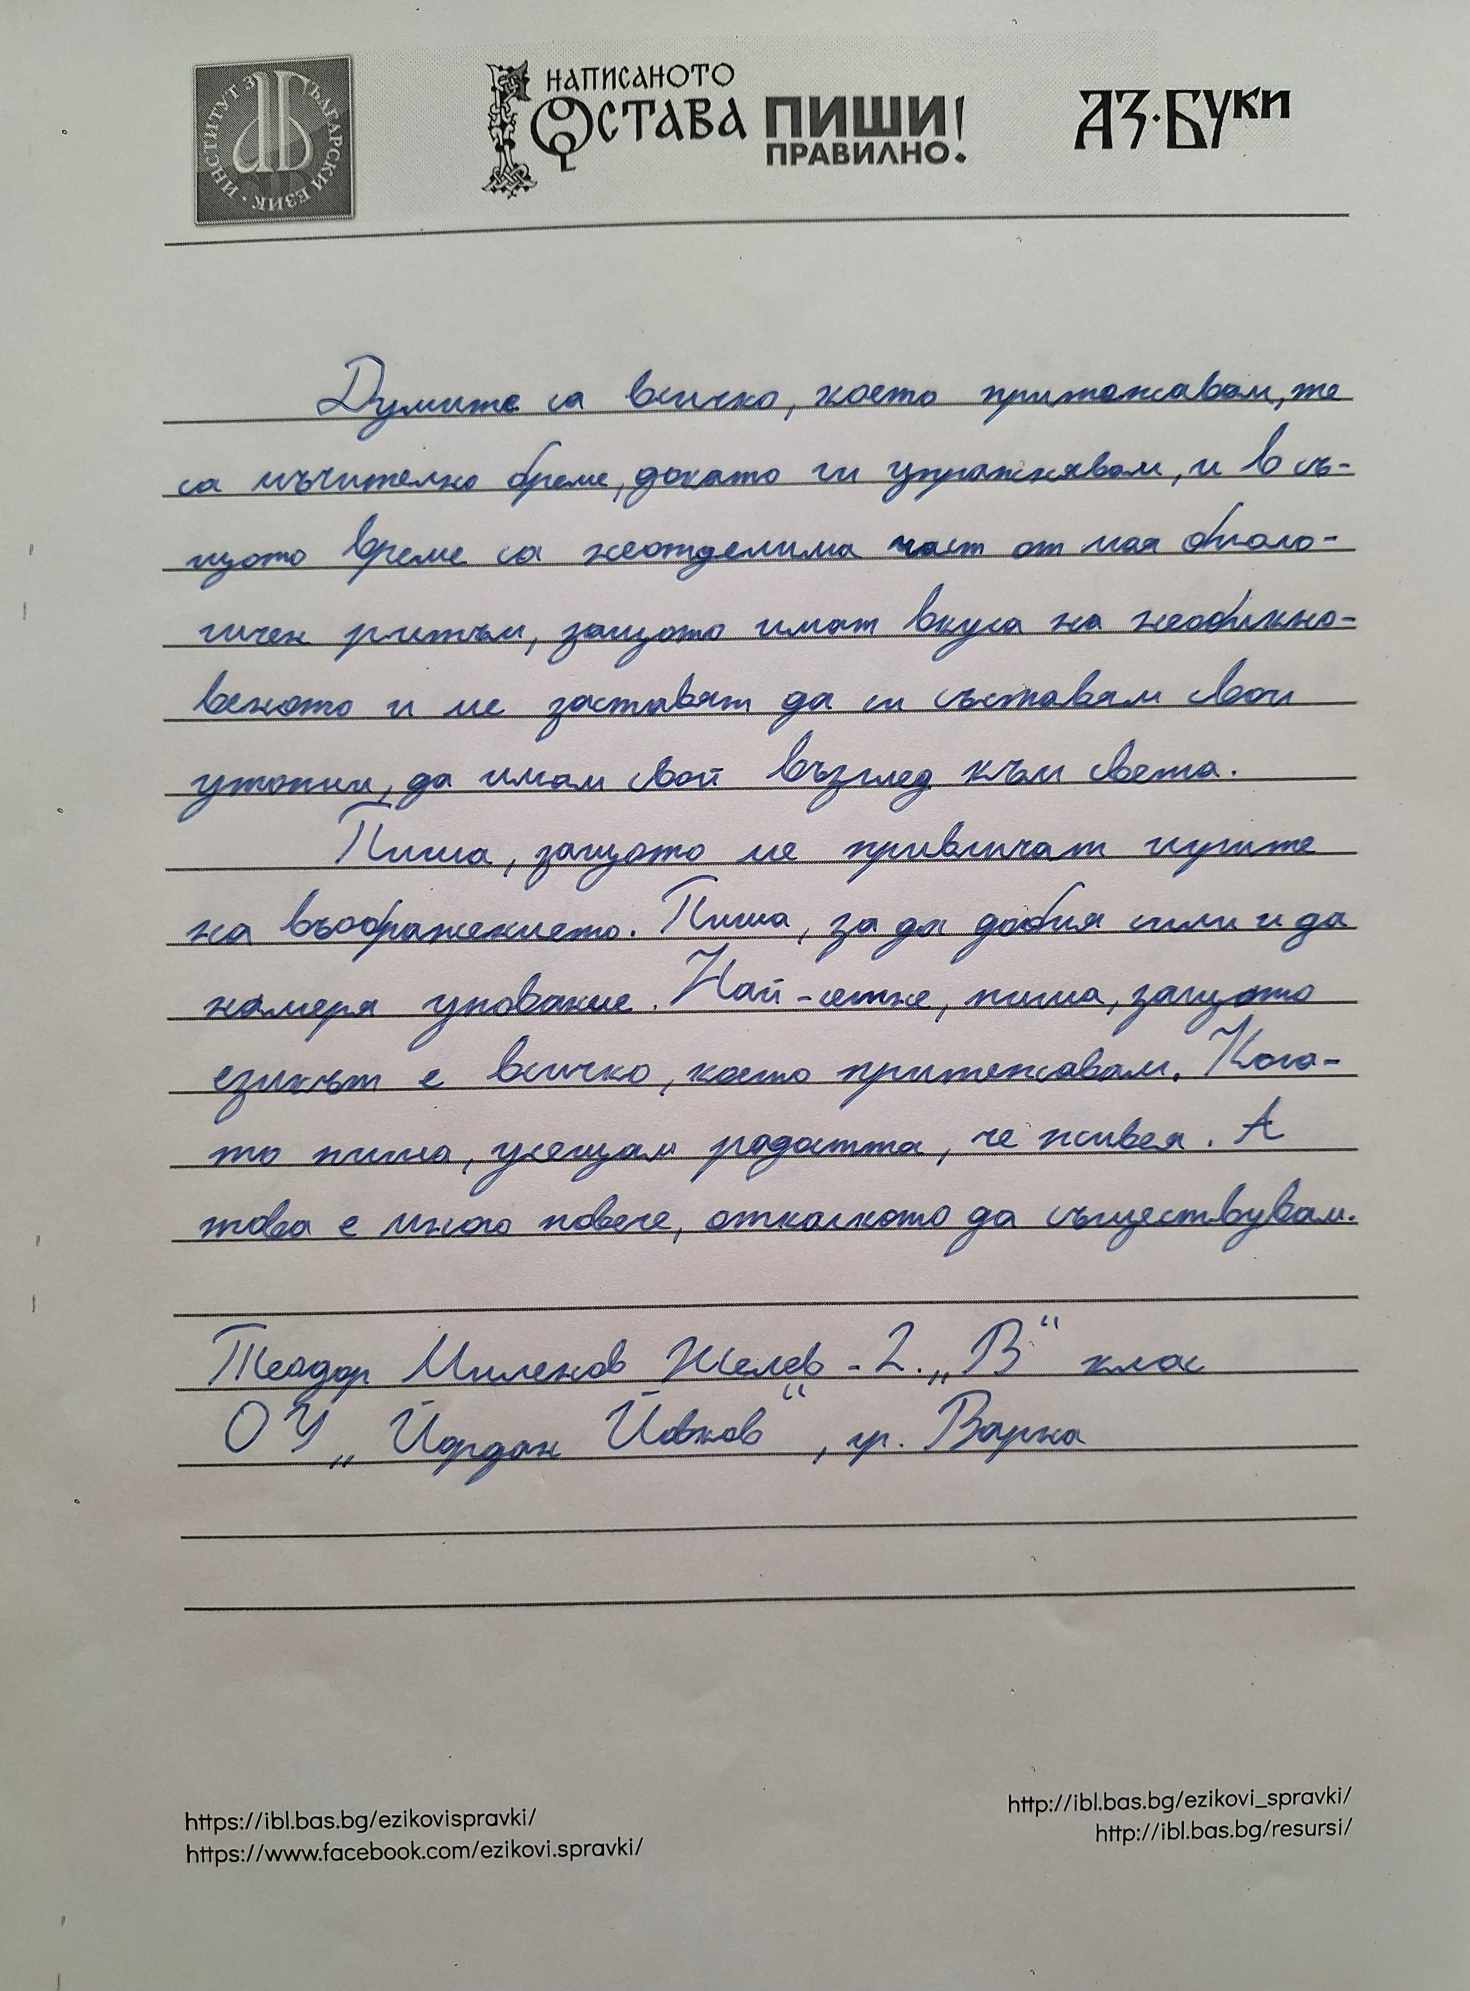 ИНСТИТУТ ЗА БЪЛГАРСКИ ЕЗИК
НАПИСАНОТО
ОСТАВА
ПИШИ
ПРАВИЛНО!
АЗ·БУКИ
Думите са всичко, което притежавам, те
са мъчително бреме, докато ги упражнявам, и в съ-
щото време са неотделима част от моя биоло-
гичен ритъм, защото имат вкуса на необикно-
веното и ме заставят да си съставям свои
утопии, да имам свой възглед към света.
Пиша, защото ме привличат игрите
на въображението. Пиша, за да добия сили и да
намеря упование. Най-сетне, пиша, защото
езикът е всичко, което притежавам. Кога-
то пиша, усещам радостта, че живея. А
това е много повече, отколкото да съществувам.
Теодор Миленов Желев - 2. „В“ клас
ОУ „Йордан Йовков“, гр. Варна
https://ibl.bas.bg/ezikovispravki/
https://www.facebook.com/ezikovi.spravki/
http://ibl.bas.bg/ezikovi_spravki/
http://ibl.bas.bg/resursi/